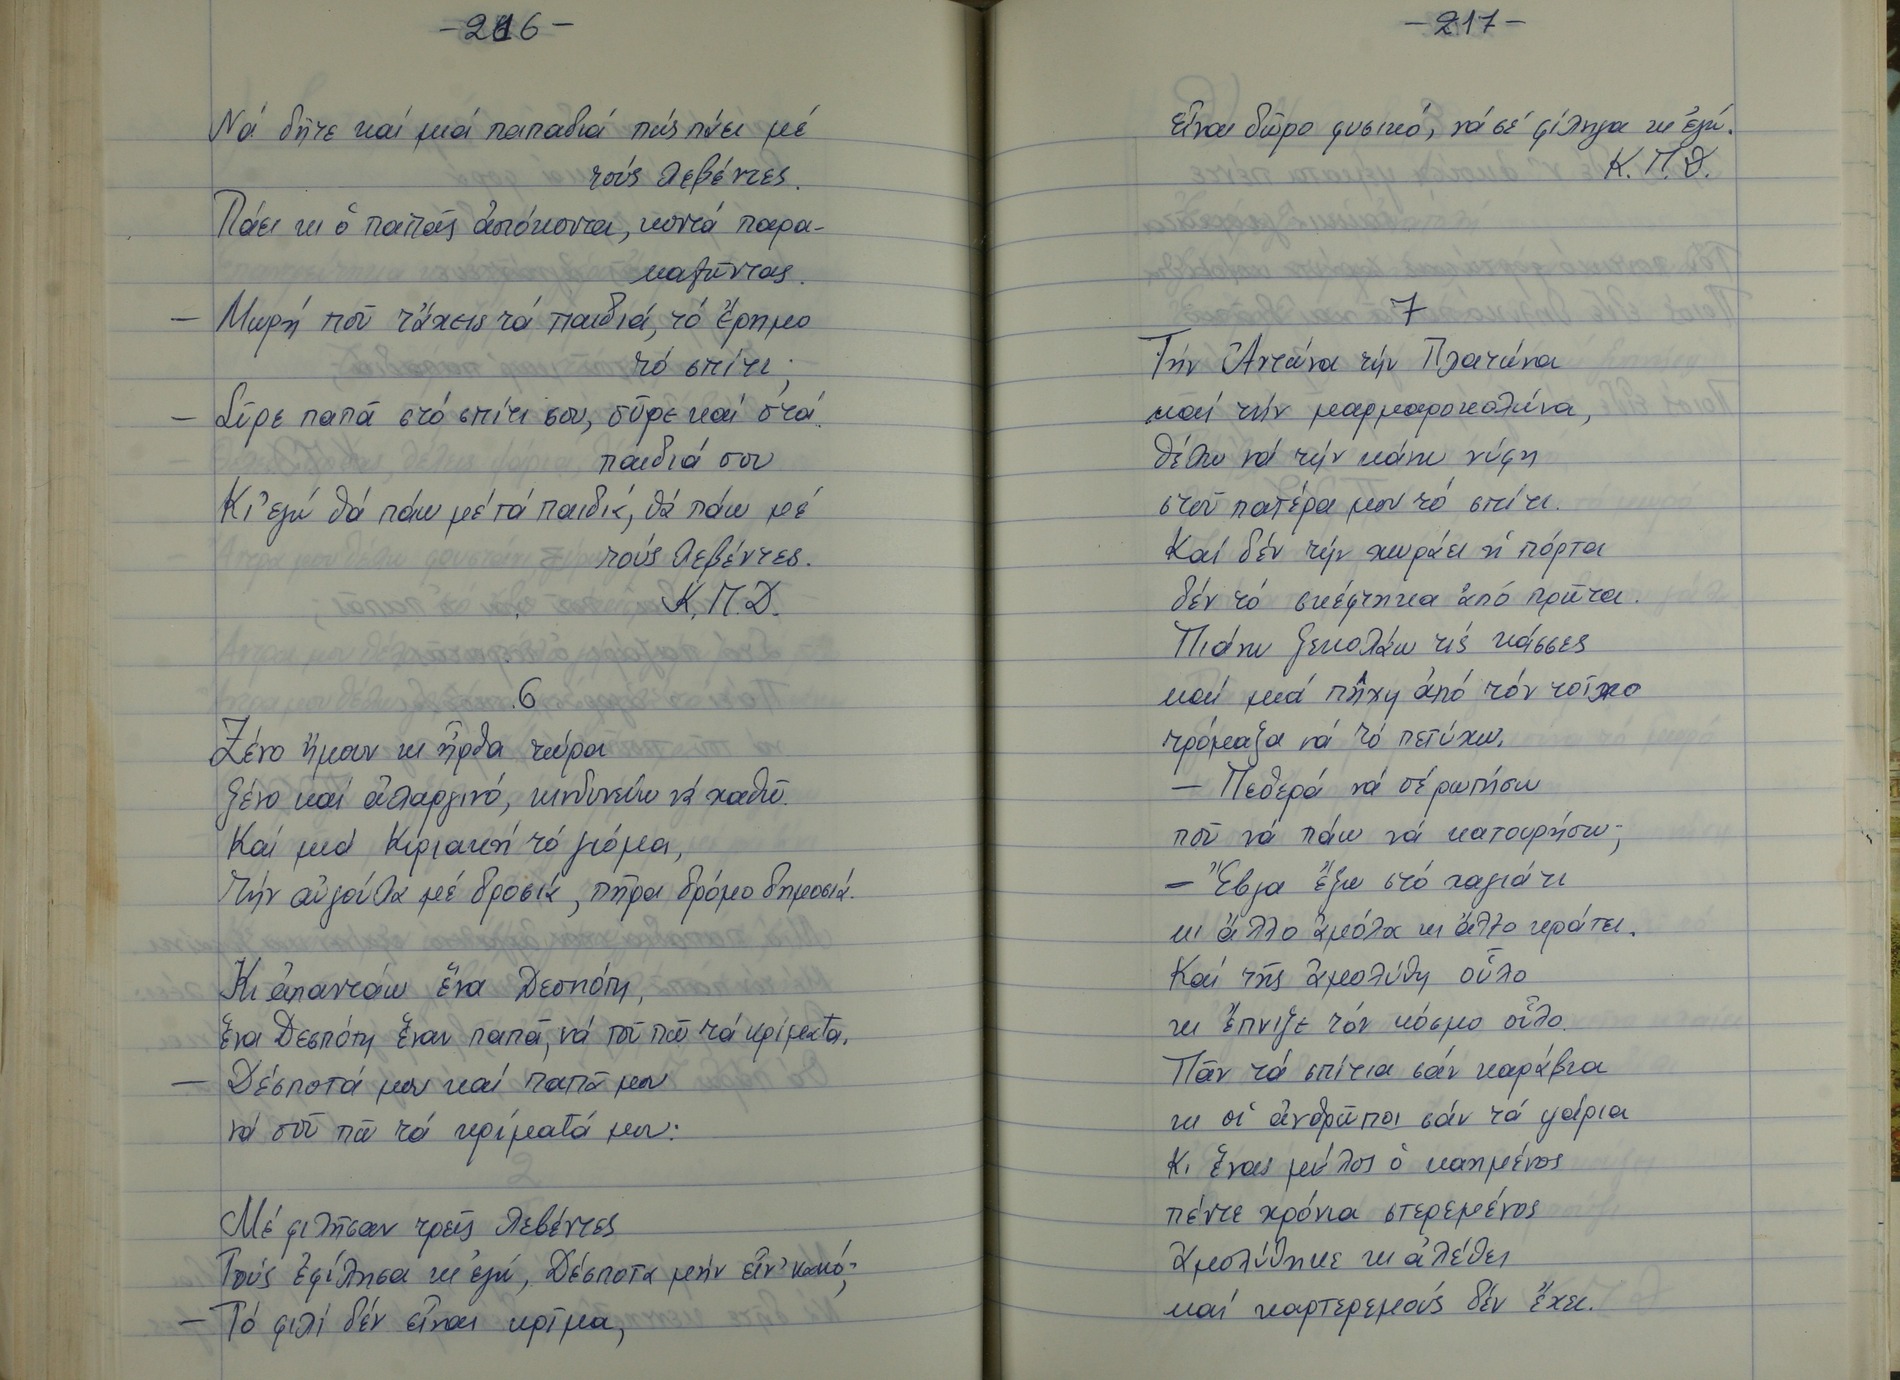 -216-
Νά δῆτε καί μιά παπαδιά πώς πάει μέ
τούς λεβέντες.
Πάει κι ὁ παπάς ἀπόκοντα, κοντά παρα-
καλῶντας.
— Μωρή ποῦ τἄχεις τά παιδιά, τό ἔρημο
τό σπίτι;
— Σῦρε παπᾶ στό σπίτι σου, σῦρε καί στά
παιδιά σου
Κι' ἐγώ θά πάω μέ τά παιδιά, θά πάω μέ
τούς λεβέντες.
Κ.Π.Δ.
6
Ξένο ἤμαν κι ἦρθα τώρα
ξένο καί ἀλαργινό, κινδυνεύω νά χαθῶ.
Καί μιά Κυριακή τό γιόμα,
τήν αὐγούλα μέ δροσιά, πῆρα δρόμο δημοσιά.
Κι ἀπαντάω ἕνα Δεσπότη,
ἕνα Δεσπότη ἕναν παπά, νά τοῦ πῶ τά κρίματα.
— Δέσποτά μου καί παπᾶ μου
νά σοῦ πῶ τά κρίματά μου:
Μέ φιλῆσαν τρεῖς λεβέντες
Τούς ἐφίλησα κι ἐγώ, Δέσποτα μήν εἶν' κακό;
— Τό φιλί δέν εἶναι κρῖμα,
-217-
εἶναι δῶρο φυσικό, νά σέ φίληγα κι ἐγώ.
Κ.Π.Δ.
7
Τήν Ἀντώνα τήν Πλατώνα
καί τήν μαρμαροκολώνα,
θέλω νά τήν κάνω νύφη
στοῦ πατέρα μου τό σπίτι.
Καί δέν τήν χωράει ἡ πόρτα
δέν τό σκέφτηκα ἀπό πρῶτα.
Πιάνω ξεκολάω τίς κάσσες
καί μιά πῆχυ ἀπό τόν τοῖχο
τρόμαξα νά τό πετύχω.
— Πεθερά νά σέ ρωτήσω
ποῦ νά πάω νά κατουρήσω;
— Ἔβγα ἔξω στό χαγιάτι
κι ἄλλο ἀμόλα κι ἄλλο κράτει.
Καί τῆς ἀμολύθη οὖλο
κι ἔπνιξε τόν κόσμο οὖλο.
Πᾶν τά σπίτια σάν καράβια
κι οἱ ἀνθρῶποι σάν τά ψάρια
Κι ἕνας μύλος ὁ καημένος
πέντε χρόνια στερεμένος
ἀμολύθηκε κι ἀλέθει
καί καρτερεμούς δέν ἔχει.